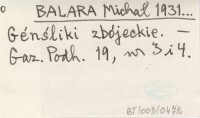 BALARA Michał 1931...
Gęśliki zbójeckie. —
Gaz. Podh. 19, nr 3 i 4.
BT/003/0472